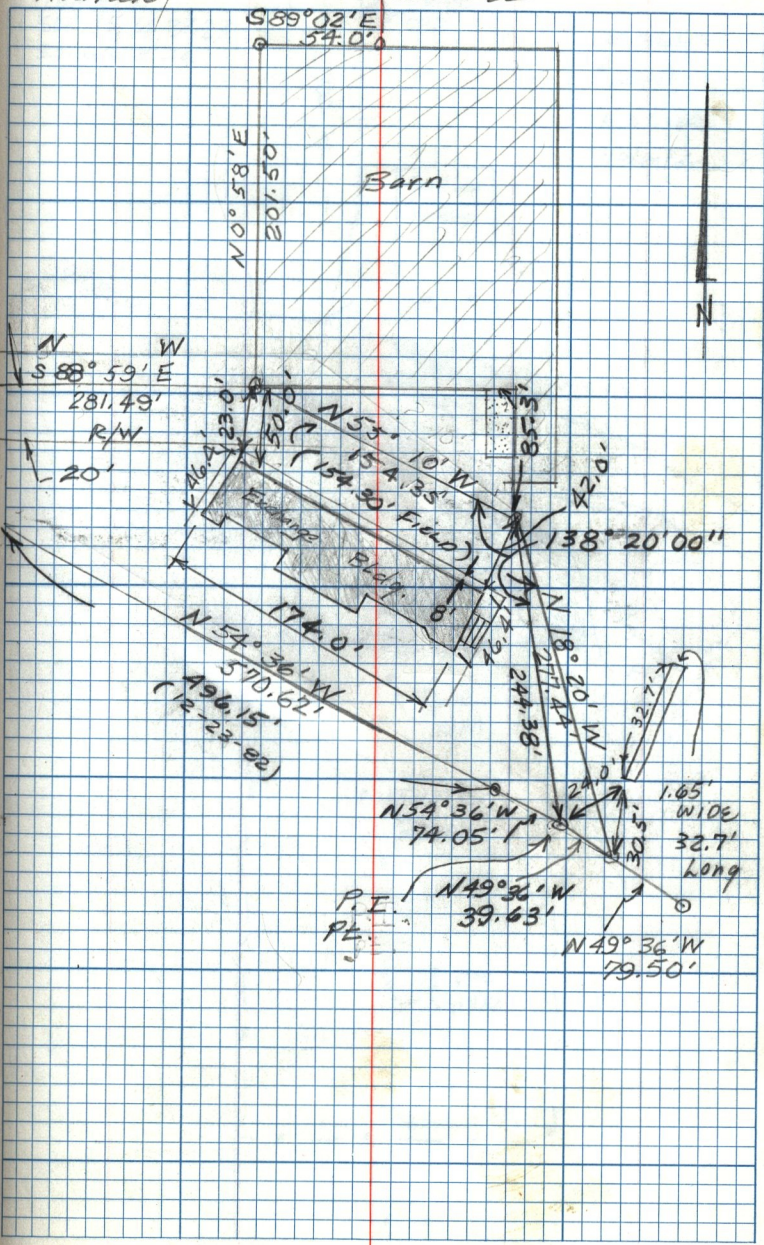 S89°02'E
54.0'
N 0° 58' E
201.50'
Barn
N
N W
S 88° 59' E
281.49'
R/W
20'
23.0'
50.0'
46.4'
N 55° 10' W
154.35'
(154.30' Field)
85.3'
42.0'
138° 20' 00"
Exchange
Bldg.
8'
46.4'
174.0'
N 54° 36' W
570.62'
496.15'
(12-23-82)
N 18° 20' W
244.38'
32.7'
24.0'
30.5'
1.65'
WIDE
32.7'
Long
N54°36'W
74.05'
N49°36'W
39.63'
P.I.
Pt.
N49°36'W
79.50'